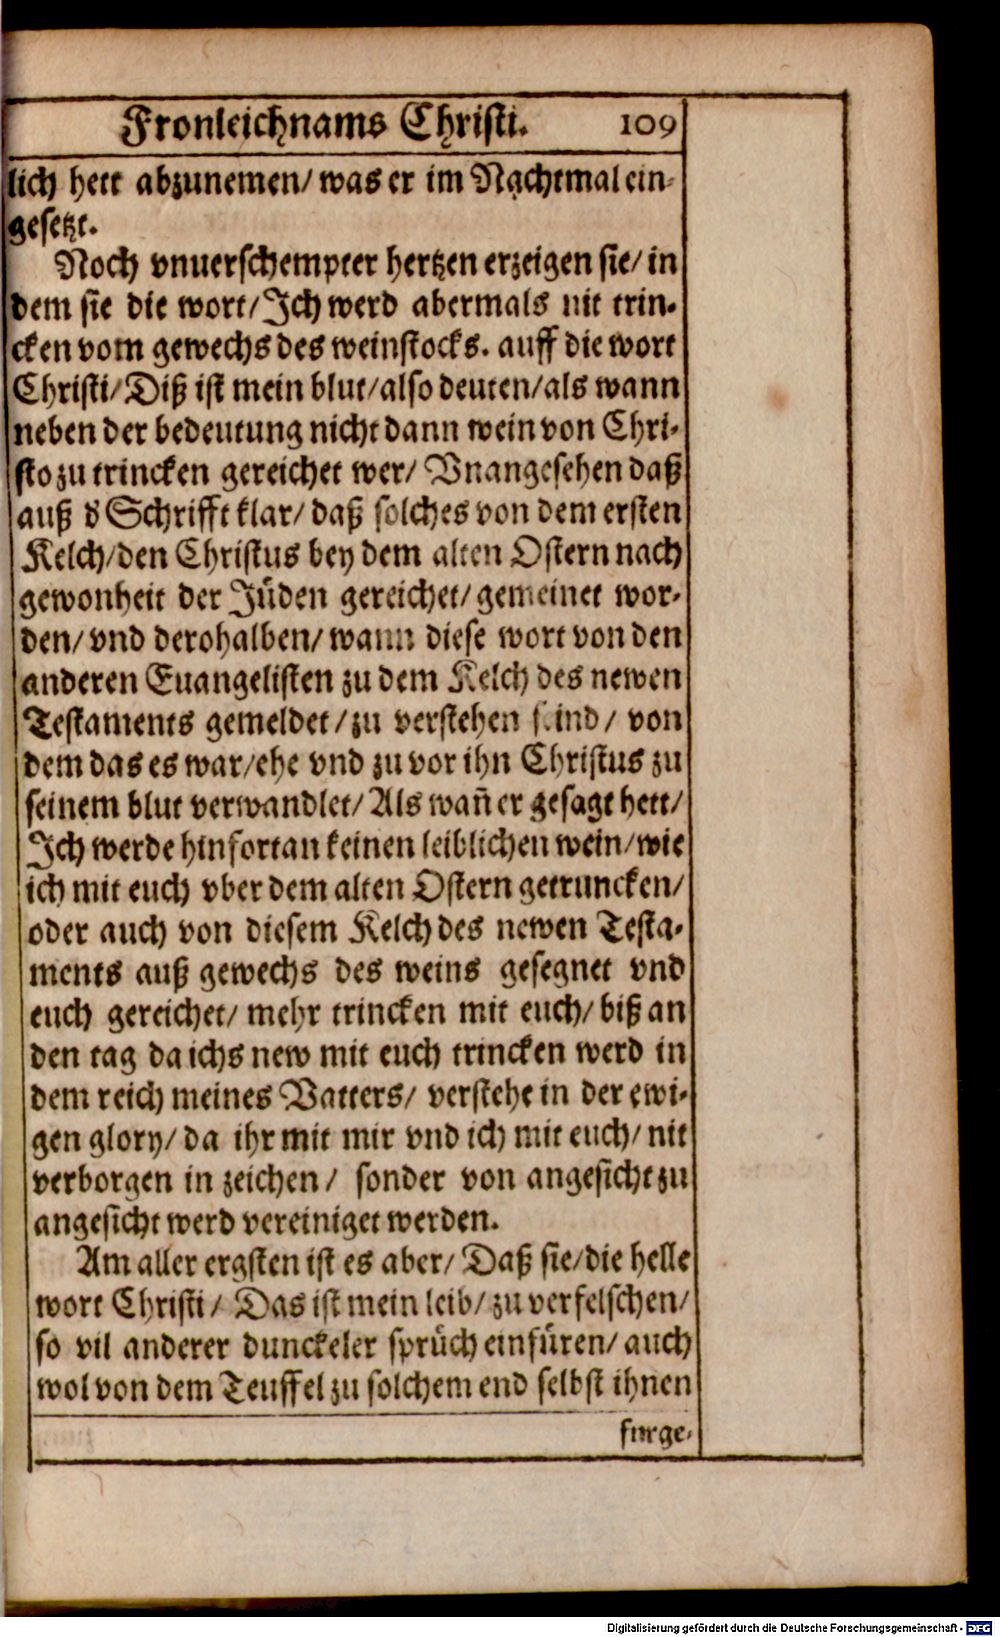 Fronleichnams Christi. 109
lich hett abzunemen/ was er im Nachtmal ein-
gesetzt.
Noch vnuerschempter hertzen erzeigen sie/ in
dem sie die wort/ Ich werd abermals nit trin-
cken vom gewechs des weinstocks. auff die wort
Christi/ Diß ist mein blut/ also deuten/ als wann
neben der bedeutung nicht dann wein von Chri-
sto zu trincken gereichet wer/ Vnangesehen daß
auß d' Schrifft klar/ daß solches von dem ersten
Kelch/ den Christus bey dem alten Ostern nach
gewonheit der Jüden gereichet/ gemeinet wor-
den/ vnd derohalben/ wann diese wort von den
anderen Euangelisten zu dem Kelch des newen
Testaments gemeldet/ zu verstehen seind/ von
dem das es war/ ehe vnd zu vor ihn Christus zu
seinem blut verwandlet/ Als wañ er gesagt hett/
Ich werde hinfortan keinen leiblichen wein/ wie
ich mit euch vber dem alten Ostern getruncken/
oder auch von diesem Kelch des newen Testa-
ments auß gewechs des weins gesegnet vnd
euch gereichet/ mehr trincken mit euch/ biß an
den tag da ichs new mit euch trincken werd in
dem reich meines Vatters/ verstehe in der ewi-
gen glory/ da ihr mit mir vnd ich mit euch/ nit
verborgen in zeichen/ sonder von angesicht zu
angesicht werd vereiniget werden.
Am aller ergsten ist es aber/ Daß sie/ die helle
wort Christi/ Das ist mein leib/ zu verfelschen/
so vil anderer dunckeler sprüch einfüren/ auch
wol von dem Teuffel zu solchem end selbst ihnen
furge-
Digitalisierung gefördert durch die Deutsche Forschungsgemeinschaft - DFG